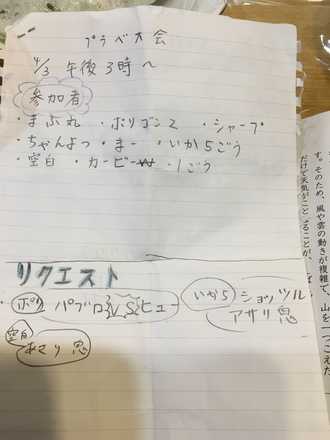 プラベ大会
4/3 午後3時〜
参加者
・まぷ丸 ・ポリゴンZ ・シャープ
・ちゃんよつ ・まー ・いか5ごう
・空白 ・カービー ・1ごう
リクエスト
・ポリ パブロ VS ヒュー
いか5 ショッツル
アサリ 忍
空白 あさり 忍
す。そのため、風や雲の動きが複雑で、山を
だけで天気がこと